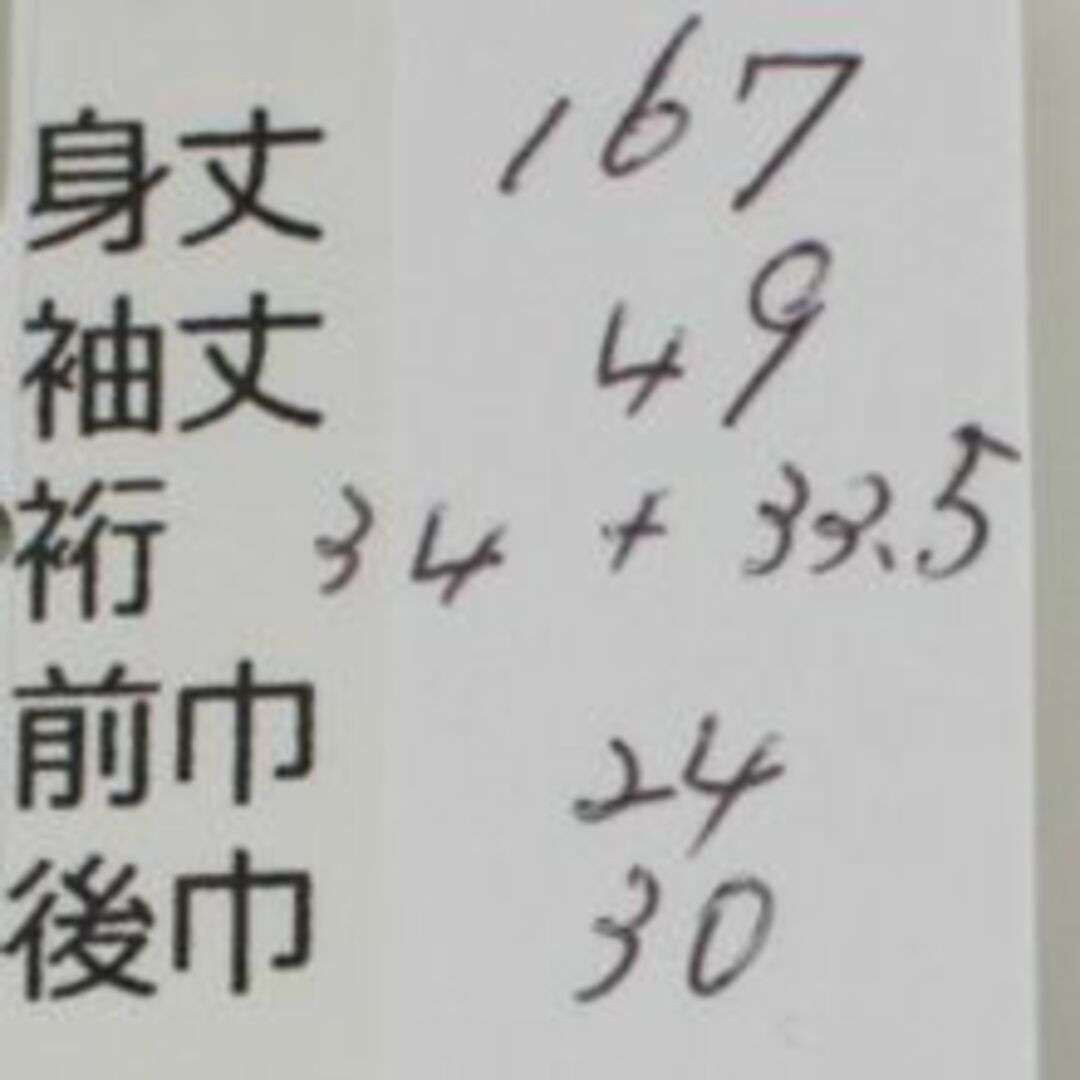 身丈 167
袖丈 49
裄 34 + 33.5
前巾 24
後巾 30